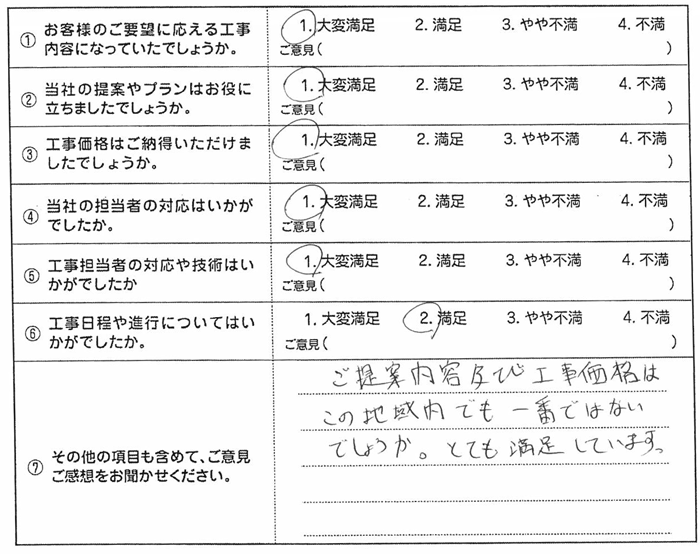 ① お客様のご要望に応える工事 1. 大変満足 2. 満足 3. やや不満 4. 不満
内容になっていたでしょうか。 ご意見( )
② 当社の提案やプランはお役に 1. 大変満足 2. 満足 3. やや不満 4. 不満
立ちましたでしょうか。 ご意見( )
③ 工事価格はご納得いただけま 1. 大変満足 2. 満足 3. やや不満 4. 不満
したでしょうか。 ご意見( )
④ 当社の担当者の対応はいかが 1. 大変満足 2. 満足 3. やや不満 4. 不満
でしたか。 ご意見( )
⑤ 工事担当者の対応や技術はい 1. 大変満足 2. 満足 3. やや不満 4. 不満
かがでしたか ご意見( )
⑥ 工事日程や進行についてはい 1. 大変満足 2. 満足 3. やや不満 4. 不満
かがでしたか。 ご意見( )
⑦ その他の項目も含めて、ご意見
ご感想をお聞かせください。
ご提案内容及び工事価格は
この地域内でも一番ではない
でしょうか。とても満足しています。